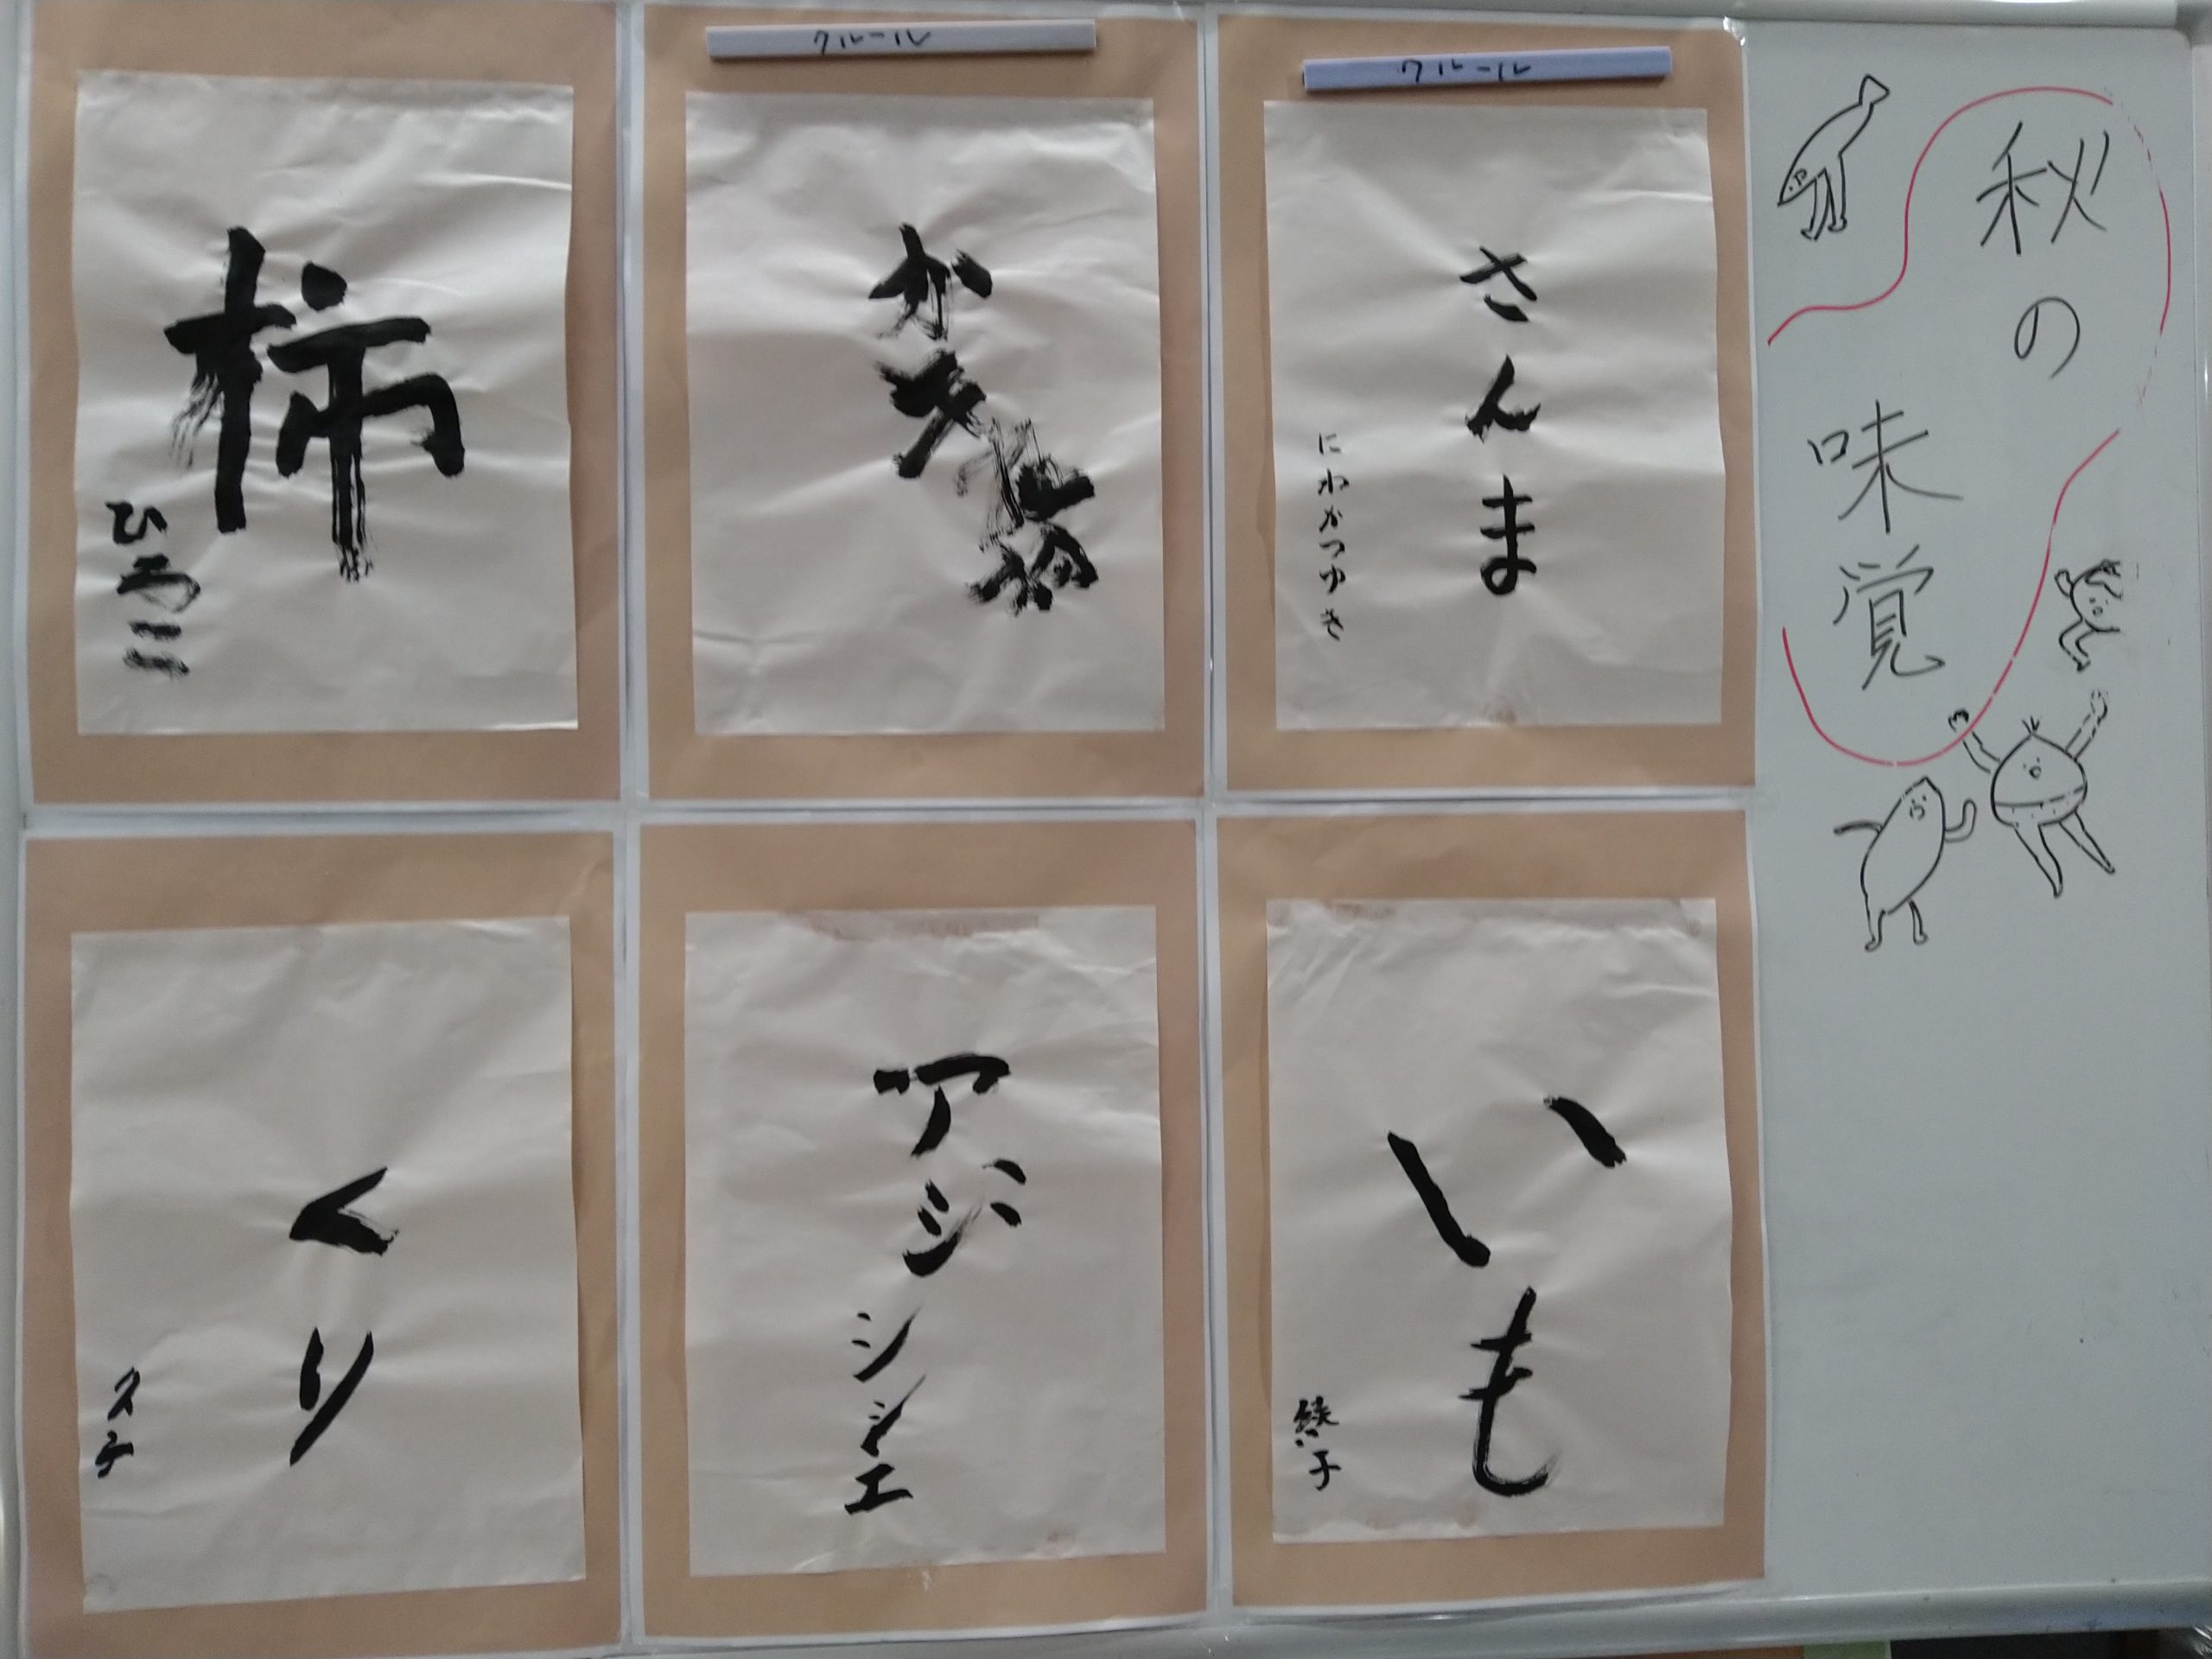 秋の
味覚
クルール
さんま
にわかつゆき
クルール
かき
柿
ひろこ
いも
綾子
アジ
シシエ
くり